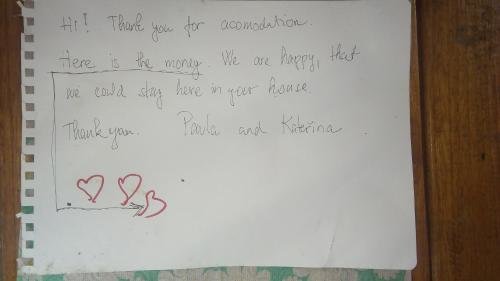 Hi! Thank you for acomodation.
Here is the money. We are happy, that
we could stay here in your house.
Thank you. Paula and Kateřina